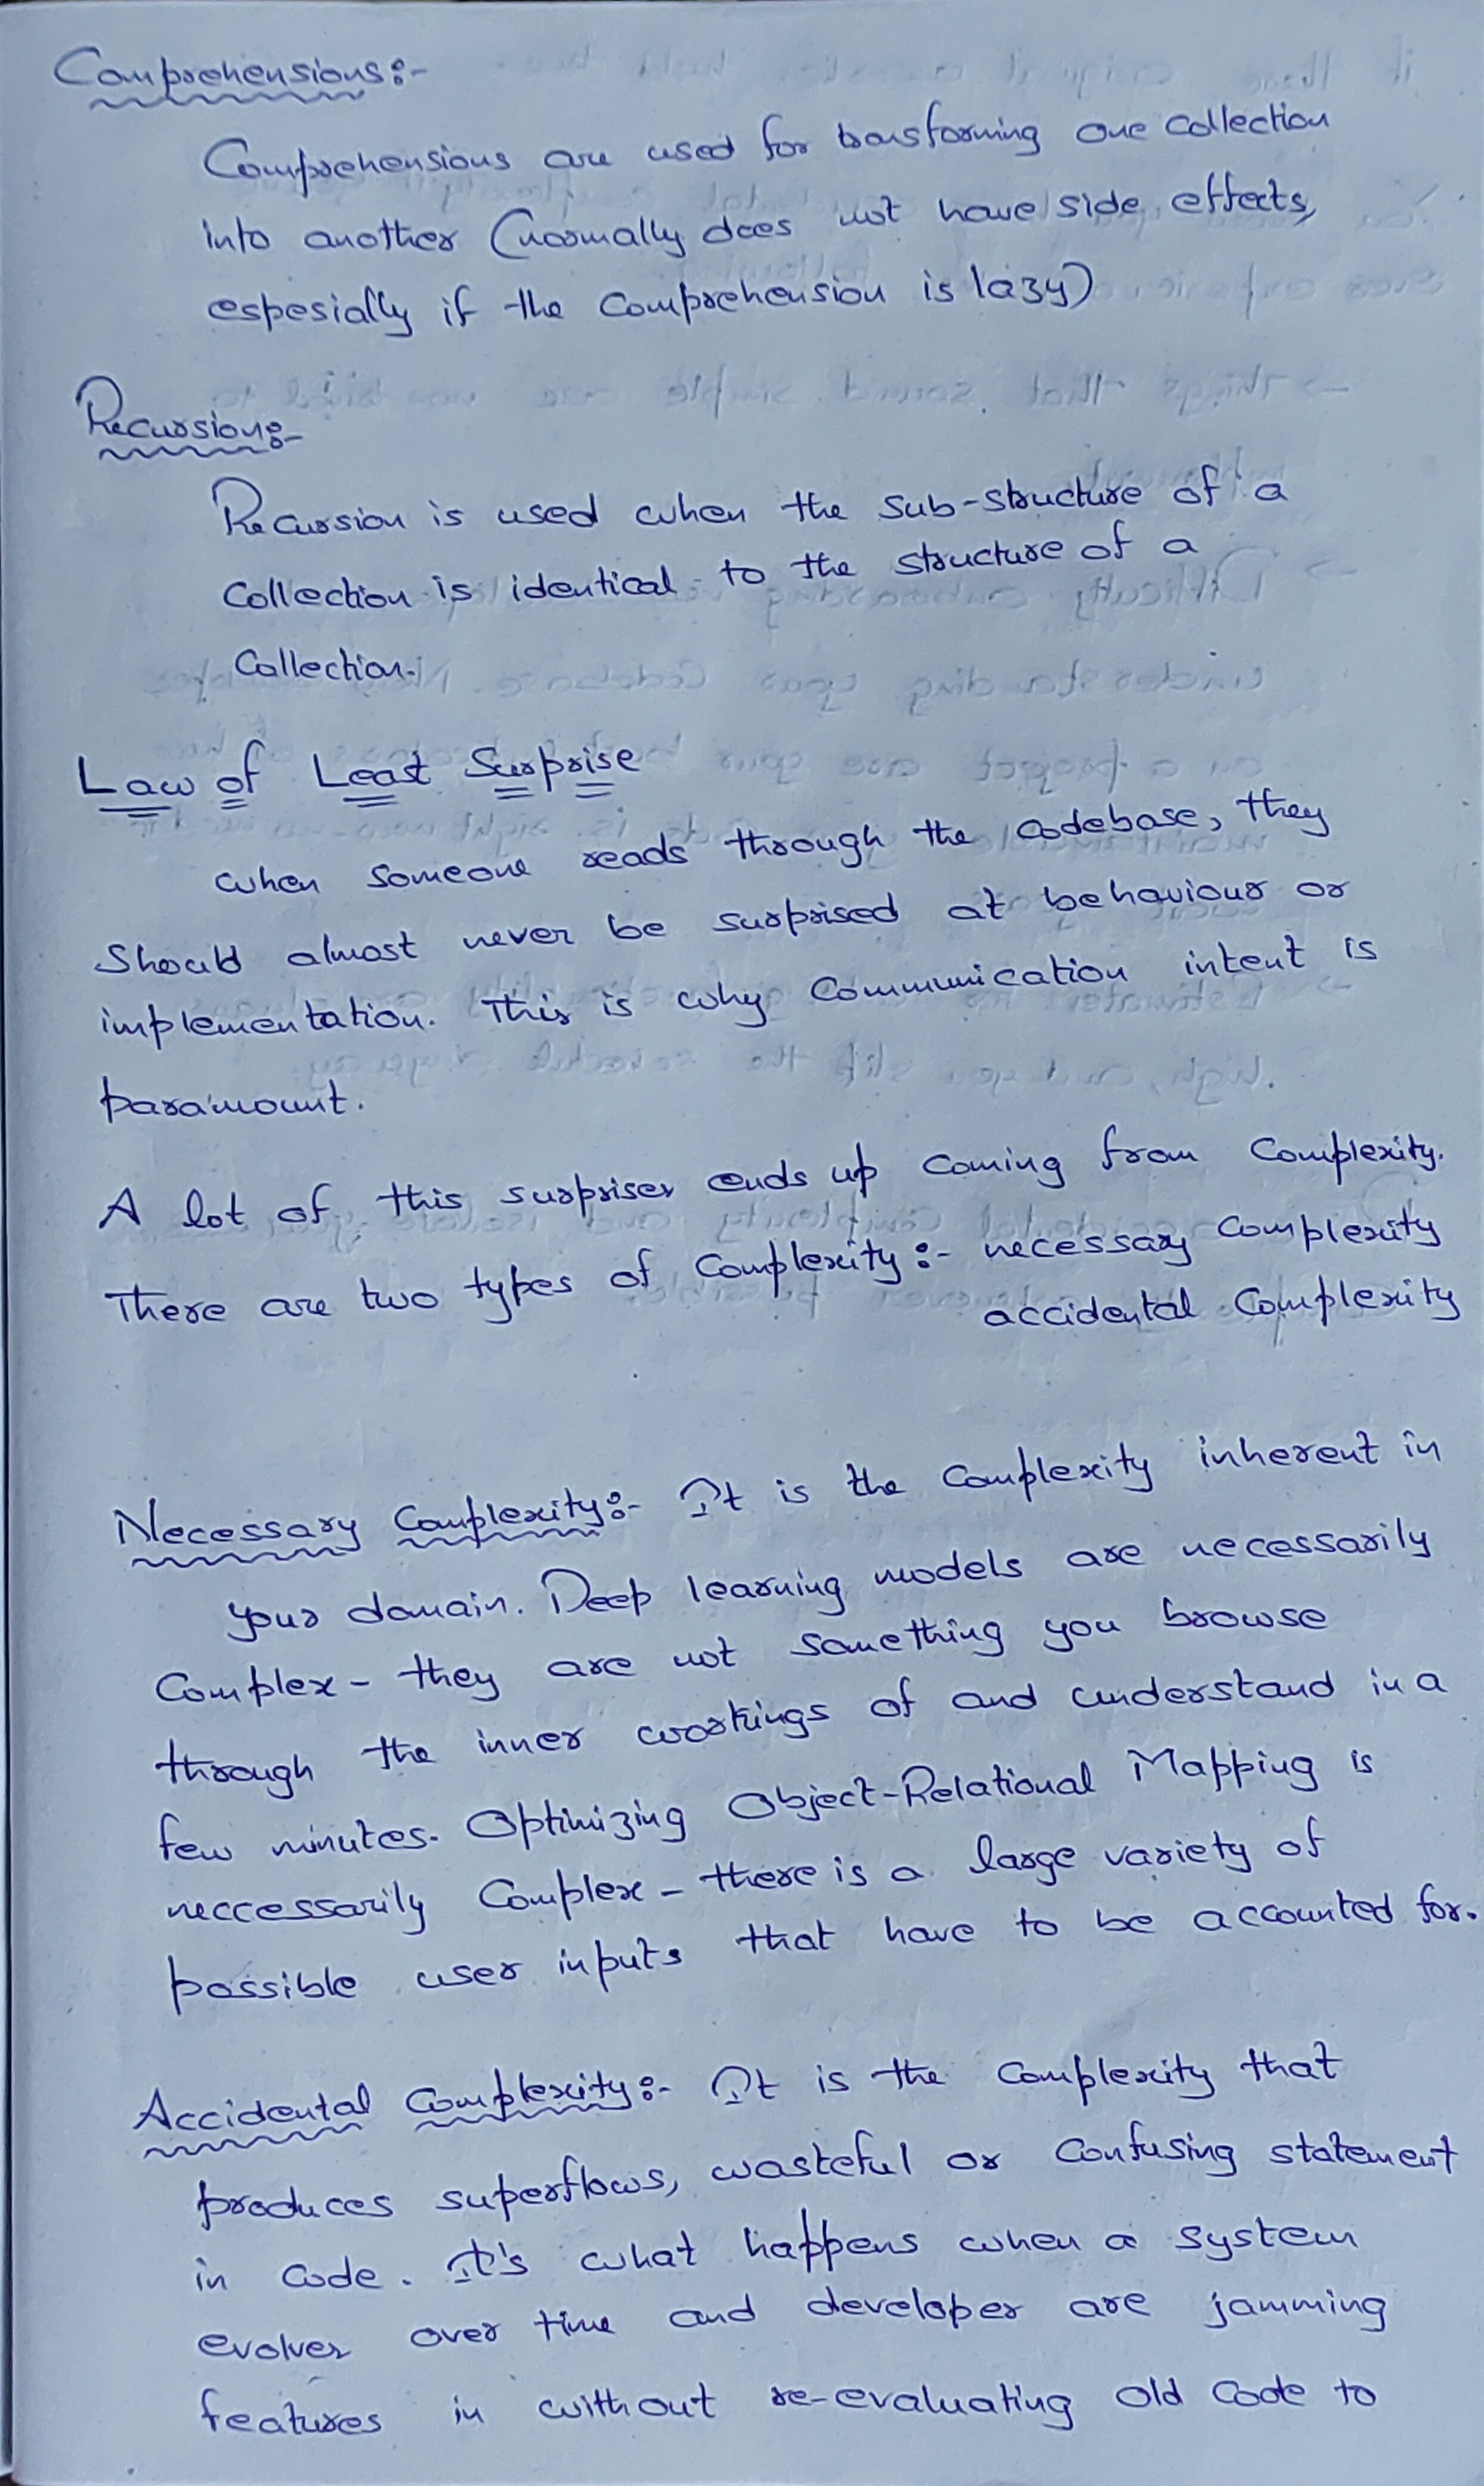 Comprehensions:-
Comprehensions are used for transforming one collection
into another (normally does not have side effects,
espesially if the comprehension is lazy)
Recursion:-
Recursion is used when the sub-structure of a
collection is identical to the structure of a
collection.
Law of Least Surprise
when someone reads through the codebase, they
should almost never be surprised at behaviour or
implementation. This is why communication intent is
paramount.
A lot of this surpriser ends up coming from complexity.
There are two types of complexity:- necessary complexity
accidental complexity
Necessary Complexity:- It is the complexity inherent in
your domain. Deep learning models are necessarily
complex - they are not something you browse
through the inner workings of and understand in a
few minutes. Optimizing Object-Relational Mapping is
neccessarily complex - there is a large variety of
possible user inputs that have to be accounted for.
Accidental Complexity:- It is the complexity that
produces superflows, wasteful or confusing statement
in code. It's what happens when a system
evolver over time and developer are jamming
features in without re-evaluating old code to